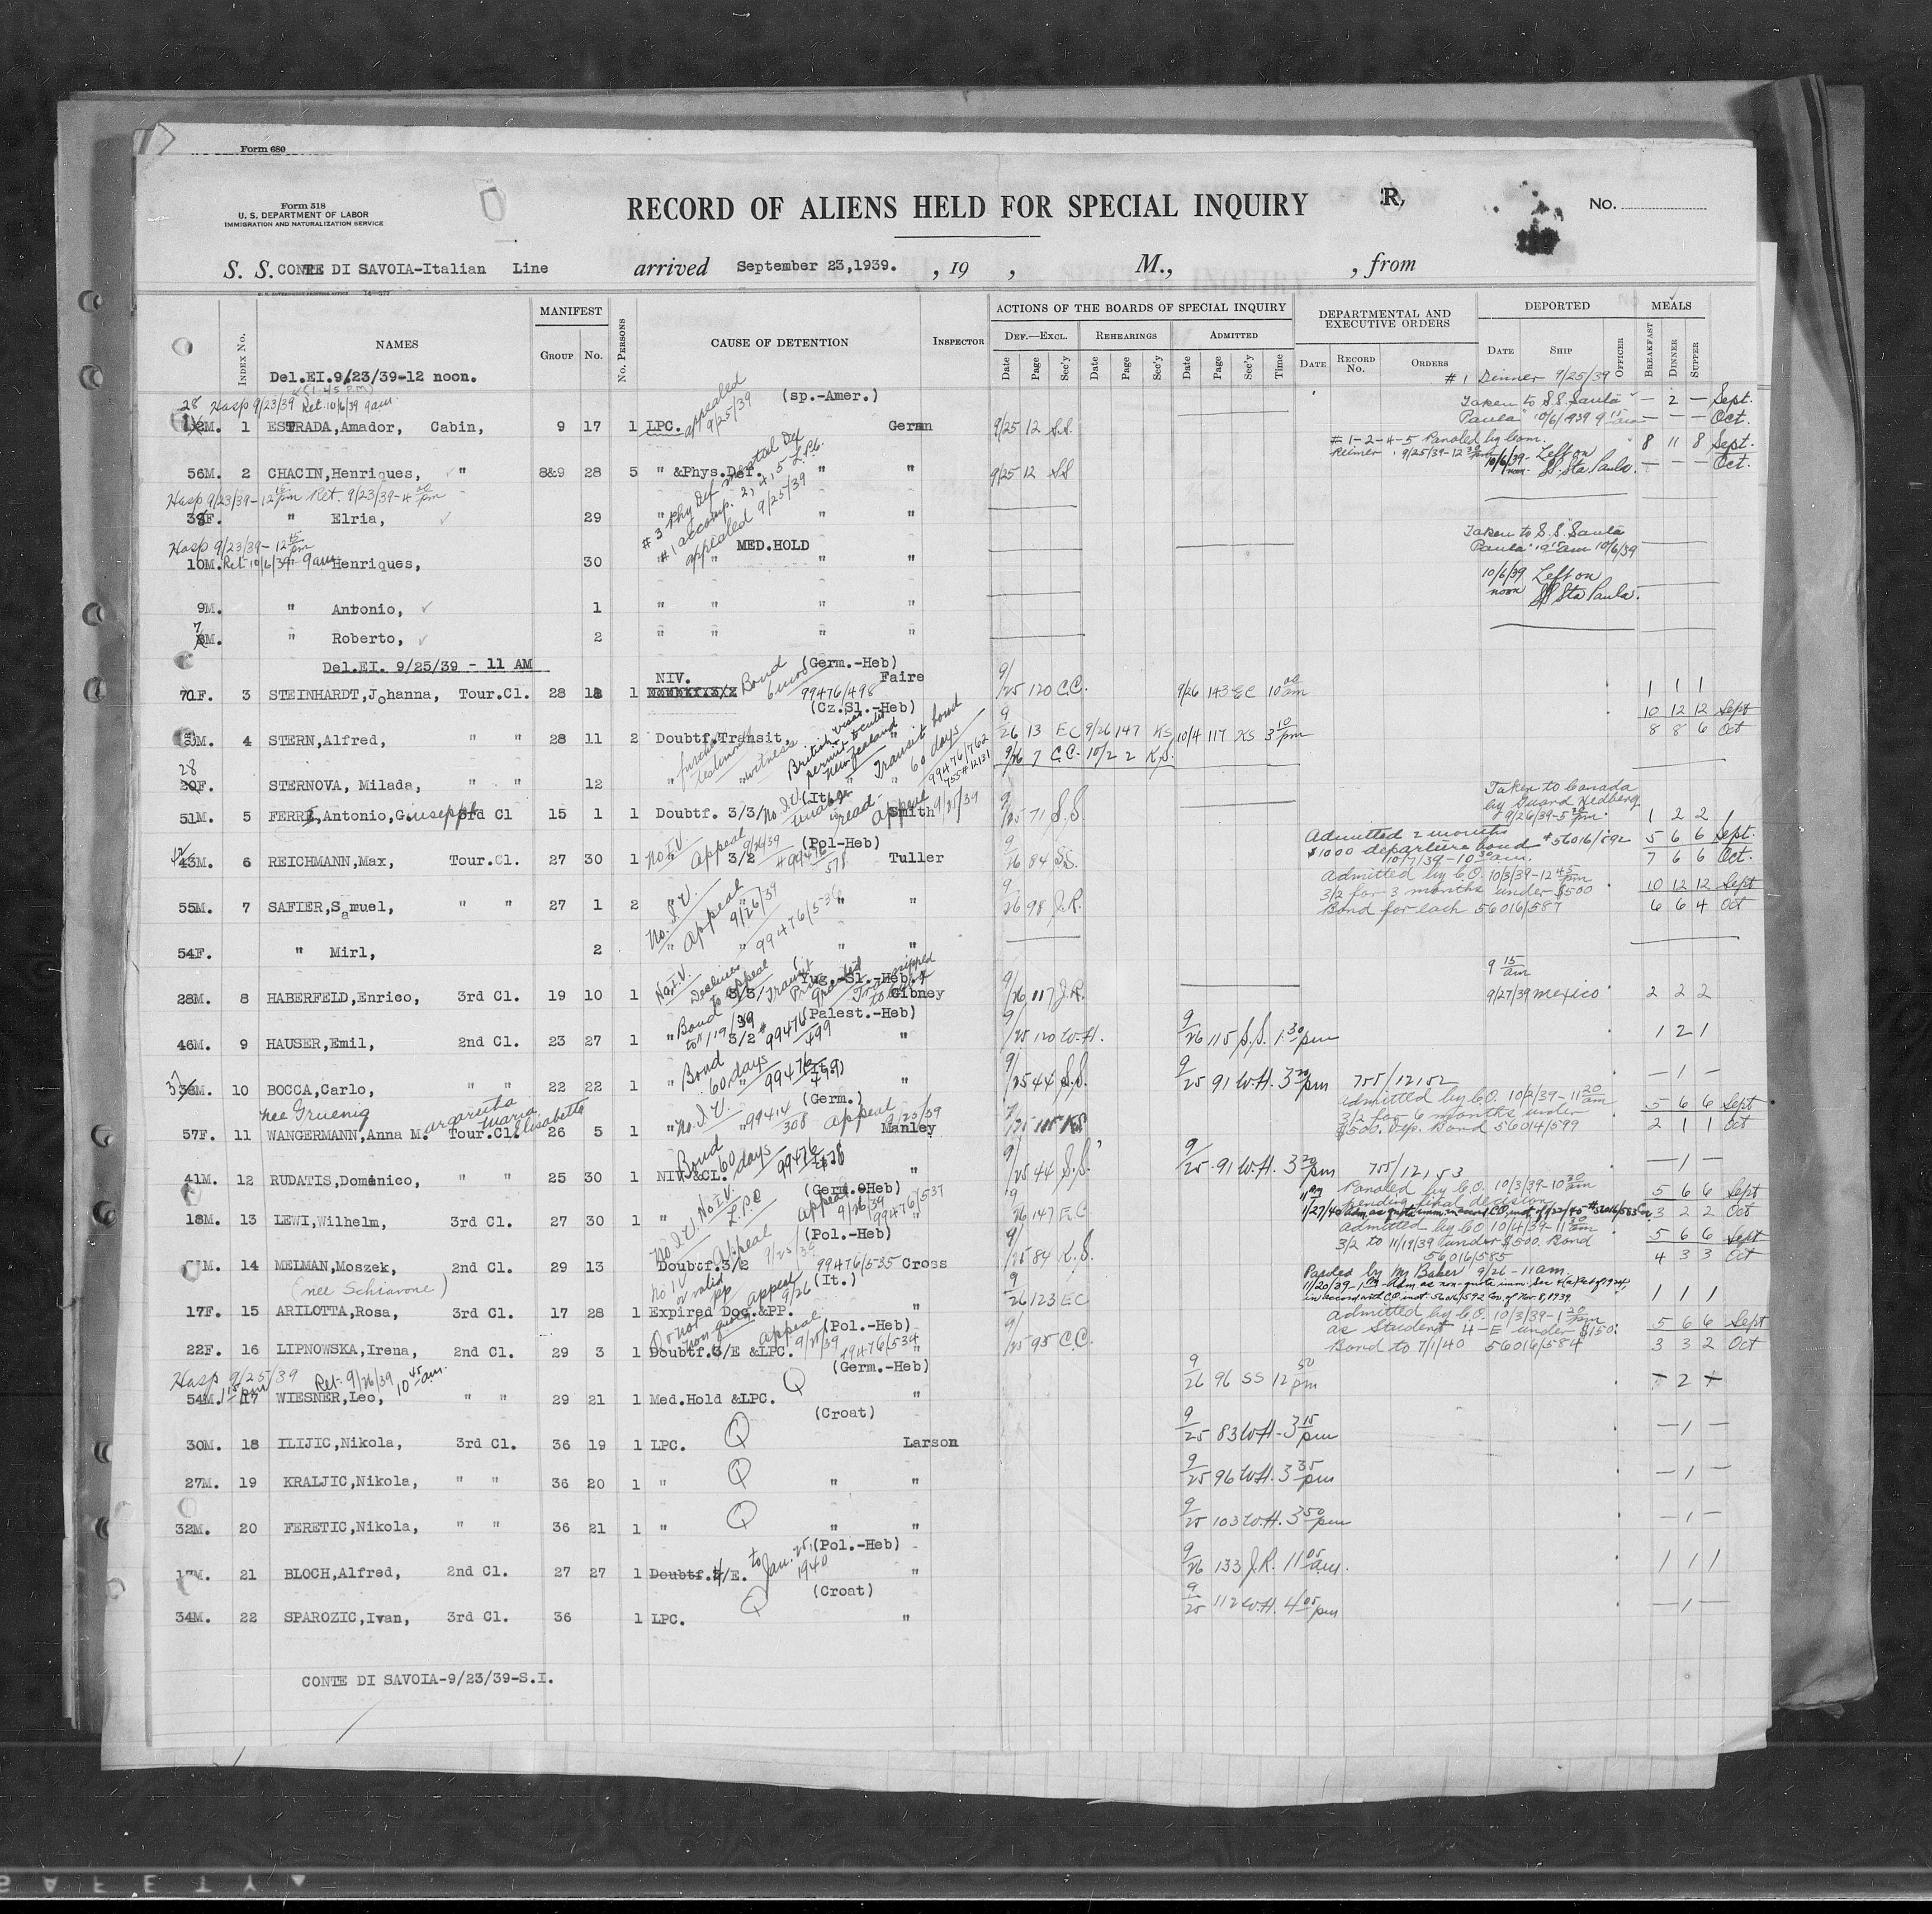 Form 680
Form 318
U. S. DEPARTMENT OF LABOR
IMMIGRATION AND NATURALIZATION SERVICE
RECORD OF ALIENS HELD FOR SPECIAL INQUIRY
R,
No.
S. S. CONTE DI SAVOIA-Italian Line arrived September 23,1939. , 19 , M., , from
INDEX No. NAMES MANIFEST GROUP No. No. PERSONS CAUSE OF DETENTION INSPECTOR
ACTIONS OF THE BOARDS OF SPECIAL INQUIRY
DEF.—EXCL. REHEARINGS ADMITTED
Date Page Sec'y Date Page Sec'y Date Page Sec'y Time
DEPARTMENTAL AND EXECUTIVE ORDERS
DATE RECORD No. ORDERS
DEPORTED
DATE SHIP OFFICER
MEALS
BREAKFAST DINNER SUPPER
Del.EI.9/23/39-12 noon.
(1:45 PM)
#1 Dinner 9/25/39
28 Hosp 9/23/39 Ret. 10/6/39 9am
(sp.-Amer.)
Taken to S.S. Santa — 2 — Sept.
Paula 10/6/39 9 15 am — — — Oct.
M. 1 ESTRADA,Amador, Cabin, 9 17 1 LPC. appealed 9/25/39 German 9/25 12 S.S.
#1-2-4-5 Paroled by Com. Reimer. 9/25/39-12 pm
8 11 8 Sept.
56M. 2 CHACIN,Henriques, " 8&9 28 5 " &Phys.Def. " " 9/25 12 SS
10/6/39- noon Left on SS Sta Paula. — — — Oct.
Hosp 9/23/39-12 15 pm Ret. 9/23/39-4 00 pm
#3 Phy Def mental Def
#1 accomp. 2, 4, 5 L.P.C.
appealed 9/25/39
F. " Elria, 29 " " "
Hosp 9/23/39-12 15 pm
MED.HOLD
Taken to S.S. Santa
Paula 9 15 am 10/6/39
Ret 10/6/39 9am
10M. Henriques, 30 " " " "
10/6/39 noon Left on SS Sta Paula.
9M. " Antonio, 1 " " " "
7 M. " Roberto, 2 " " " "
Del.EI. 9/25/39 - 11 AM
(Germ.-Heb)
NIV.
70F. 3 STEINHARDT,Johanna, Tour.Cl. 28 18 1 Bond 6 mos 99476/498 Faire 9/25 120 C.C. 9/26 143 EC 10 00 am 1 1 1
(Cz.Sl.-Heb)
10 12 12 Sept
M. 4 STERN,Alfred, " " 28 11 2 Doubtf.Transit. 9/26 13 EC 9/26 147 KS 10/4 117 KS 3 10 pm 8 8 6 Oct
further testimony
witness
British visas
permit to enter
New Zealand
Transit bond
60 days
99476/762
755#12131
9/26 7 C.C. 10/2 2 K.S.
28 F. STERNOVA, Milada, " " 12 " " "
(It.)
Taken to Canada
by Guard Hedberg
9/26/39-5 30 pm.
51M. 5 FERRI,Antonio,Giuseppe 3rd Cl 15 1 1 Doubtf. 3/3/No I.V. unable to read- appeal 9/25/39 Smith 9/25 71 S.S. 1 2 2
(Pol-Heb)
Admitted 2 months #56016/892
$1000 departure bond
10/7/39-10 30 am.
5 6 6 Sept.
43M. 6 REICHMANN,Max, Tour.Cl. 27 30 1 No I.V. Appeal 9/26/39 3/2 #99476/578 Tuller 9/26 84 S.S. 7 6 6 Oct.
Admitted by C.O. 10/3/39-12 45 pm
3/2 for 3 months under $500
Bond for each 56016/587
10 12 12 Sept
55M. 7 SAFIER,Samuel, " " 27 1 2 No. I.V. Appeal 9/26/39 99476/536 " " 9/26 98 J.R. 6 6 4 Oct
54F. " Mirl, 2 " " " "
(Yug.-Sl.-Heb.)
9 15 am
28M. 8 HABERFELD,Enrico, 3rd Cl. 19 10 1 No.I.V. Declines to appeal 3/3/ Transit Priv. granted Gibney 9/26 117 J.R. 9/27/39 Mexico 2 2 2
(Palest.-Heb)
46M. 9 HAUSER,Emil, 2nd Cl. 23 27 1 " Bond to 1/19/39 3/2 #99476/499 " 9/25 120 W.H. 9/26 115 S.S. 1 30 pm 1 2 1
37 M. 10 BOCCA,Carlo, " " 22 22 1 " Bond 60 days 99476 " 9/25 44 S.S. 9/25 91 W.H. 3 20 pm 755/12152 — 1 —
nee Gruenig
(Germ.)
admitted by C.O. 10/2/39-11 20 am
3/2 for 6 months under
$500. Dep. Bond 56014/599
5 6 6 Sept
57F. 11 WANGERMANN,Anna Margaruta Maria Elisabetta Tour.Cl. 26 5 1 "No I.V. 99414/308 appeal 9/25/39 Manley 9/25 115 KS 2 1 1 Oct
41M. 12 RUDATIS,Domenico, " " 25 30 1 NIV.&CL. Bond 60 days 99476 " 9/25 44 S.S. 9/25 91 W.H. 3 20 pm 755/12153 — 1 —
(Germ.-Heb)
Paroled by C.O. 10/3/39-10 30 am
pending final decision
5 6 6 Sept
18M. 13 LEWI,Wilhelm, 3rd Cl. 27 30 1 " No I.V. L.P.C. appeal 9/26/39 99476/537 " 9/26 147 E.C 3 2 2 Oct
(Pol.-Heb)
admitted by CO 10/4/39-11 30 am
3/2 to 11/19/39 under $500. Bond
56016/585
5 6 6 Sept
M. 14 MELMAN,Moszek, 2nd Cl. 29 13 Doubtf.3/2 No I.V. Appeal 9/25/39 99476/535 Cross 9/25 84 K.S. 4 3 3 Oct
(nee Schiavone)
No IV or valid PP appeal 9/26
(It.)
Paroled by Mr Baker 9/26-11am.
11/20/39-1 pm-Adm as non-quota imm. Sec 4(a) Act of 1924,
in accord with CO inst. 56016/592 Con. of Nov. 8, 1939.
17F. 15 ARILOTTA,Rosa, 3rd Cl. 17 28 1 Expired Doc.&PP. " 9/26 123 EC 1 1 1
(Pol.-Heb)
admitted by C.O. 10/3/39-1 20 pm
as Student 4-E under $150.
Bond to 7/1/40 56016/584
5 6 6 Sept
22F. 16 LIPNOWSKA,Irena, 2nd Cl. 29 3 1 Doubtf.3/E &LPC. appeal 9/25/39 99476/534 " 9/25 95 C.C. 3 3 2 Oct
Hosp 9/25/39 1 15 pm Ret. 9/26/39 10 45 am.
(Germ.-Heb)
54M. 17 WIESNER,Leo, " " 29 21 1 Med.Hold &LPC. Q " 9/26 96 SS 12 50 pm — 2 —
(Croat)
30M. 18 ILIJIC,Nikola, 3rd Cl. 36 19 1 LPC. Q Larson 9/25 83 W.H. 3 15 pm — 1 —
27M. 19 KRALJIC,Nikola, " " 36 20 1 " Q " " 9/25 96 W.H. 3 35 pm — 1 —
32M. 20 FERETIC,Nikola, " " 36 21 1 " Q " " 9/25 103 W.H. 3 50 pm — 1 —
(Pol.-Heb)
17M. 21 BLOCH,Alfred, 2nd Cl. 27 27 1 Doubtf.4/E. to Jan. 25, 1940 " 9/26 133 J.R. 11 05 am. 1 1 1
(Croat)
34M. 22 SPAROZIC,Ivan, 3rd Cl. 36 1 LPC. Q " 9/25 112 W.H. 4 05 pm — 1 —
CONTE DI SAVOIA-9/23/39-S.I.
SAFETY